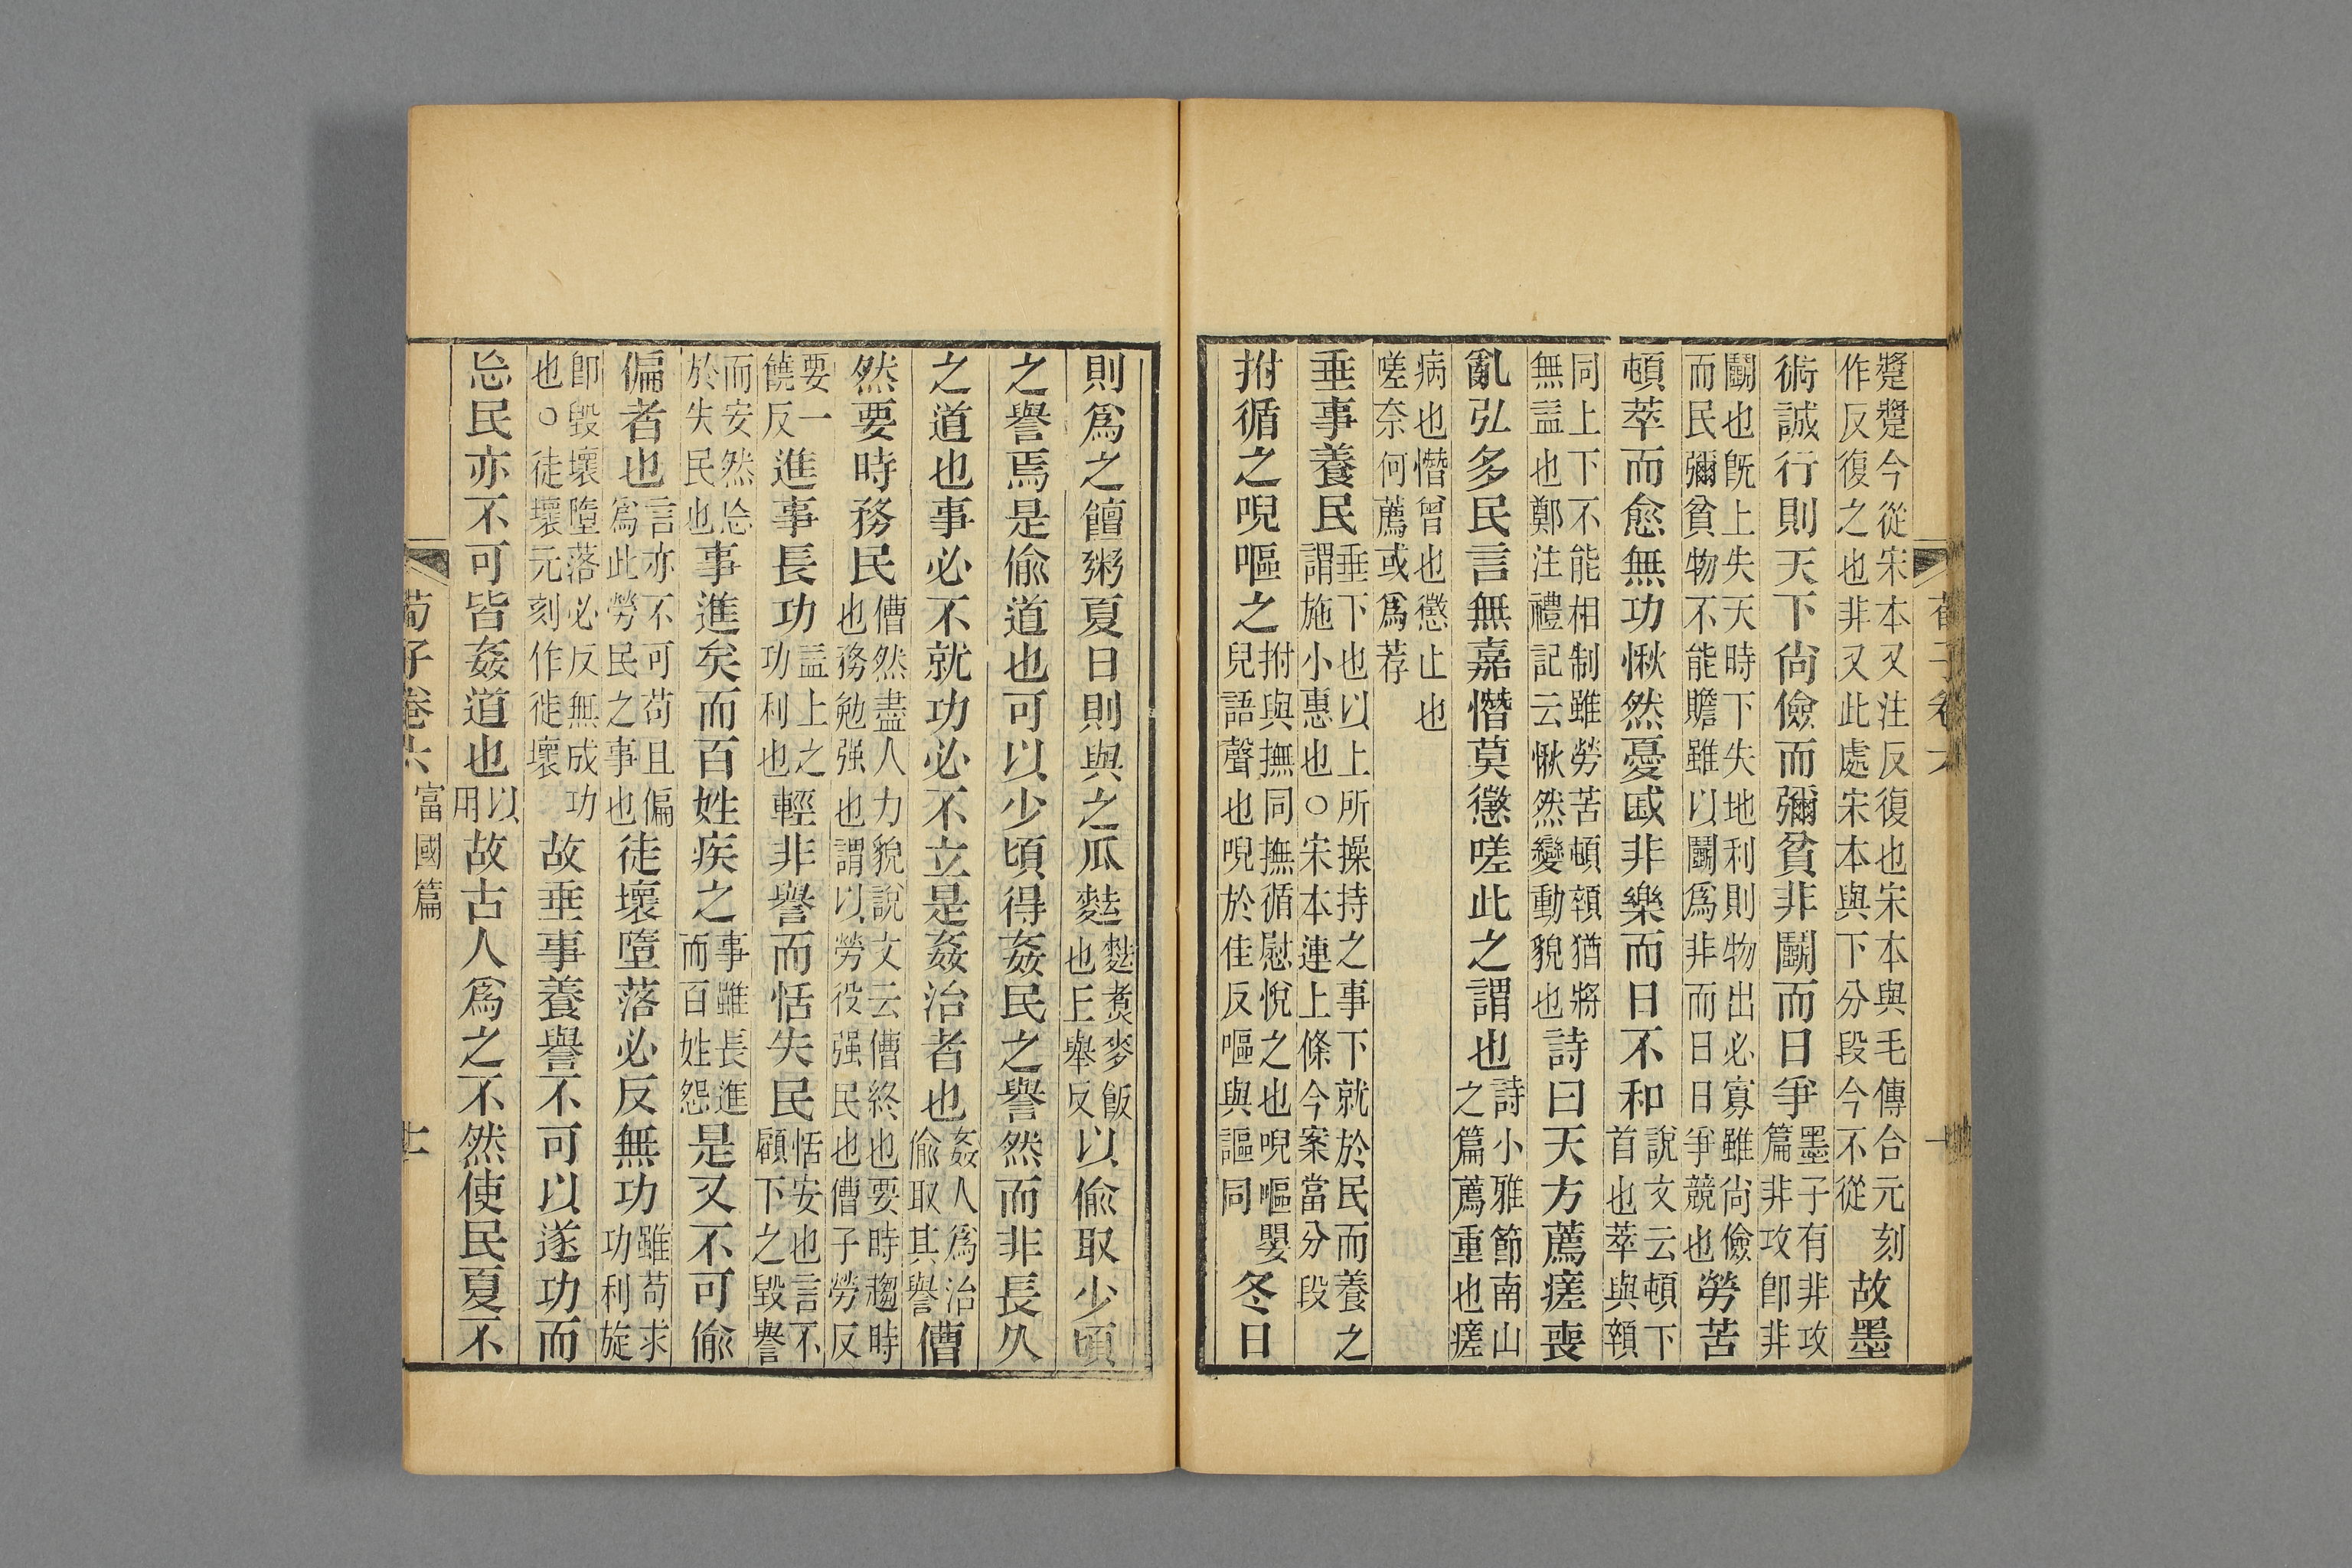 蹙蹙今從宋本又注反復也宋本與毛傳合元刻
作反復之也非又此處宋本與下分段今不從
故墨
術誠行則天下尙儉而彌貧非鬬而日爭
墨子有非攻
篇非攻卽非
鬬也旣上失天時下失地利則物出必寡雖尙儉
而民彌貧物不能贍雖以鬬爲非而日日爭競也
勞苦
頓萃而愈無功愀然憂戚非樂而日不和
說文云頓下
首也萃與顇
同上下不能相制雖勞苦頓顇猶將
無益也鄭注禮記云愀然變動貌也
詩曰天方薦瘥喪
亂弘多民言無嘉憯莫懲嗟此之謂也
詩小雅節南山
之篇薦重也瘥
病也憯曾也懲止也
嗟奈何薦或爲荐
垂事養民
垂下也以上所操持之事下就於民而養之
謂施小惠也○宋本連上條今案當分段
拊循之唲嘔之
拊與撫同撫循慰悅之也唲嘔嬰
兒語聲也唲於佳反嘔與謳同
冬日
荀子卷六
則爲之饘粥夏日則與之瓜麮
麮煑麥飯
也𠀤舉反
以偷取少頃
之譽焉是偷道也可以少頃得姦民之譽然而非長久
之道也事必不就功必不立是姦治者也
姦人爲治
偷取其譽
傮
然要時務民
傮然盡人力貌說文云傮終也要時趨時
也務勉强也謂以勞役强民也傮子勞反
要一
饒反
進事長功
益上之
功利也
輕非譽而恬失民
恬安也言不
顧下之毀譽
而安然忩
於失民也
事進矣而百姓疾之
事雖長進
而百姓怨
是又不可偷
偏者也
言亦不可苟且偏
爲此勞民之事也
徒壞墮落必反無功
雖苟求
功利旋
卽毀壞墮落必反無成功
也○徒壞元刻作徙壞
故垂事養譽不可以遂功而
忩民亦不可皆姦道也
以
用
故古人爲之不然使民夏不
荀子卷六
富國篇
十一